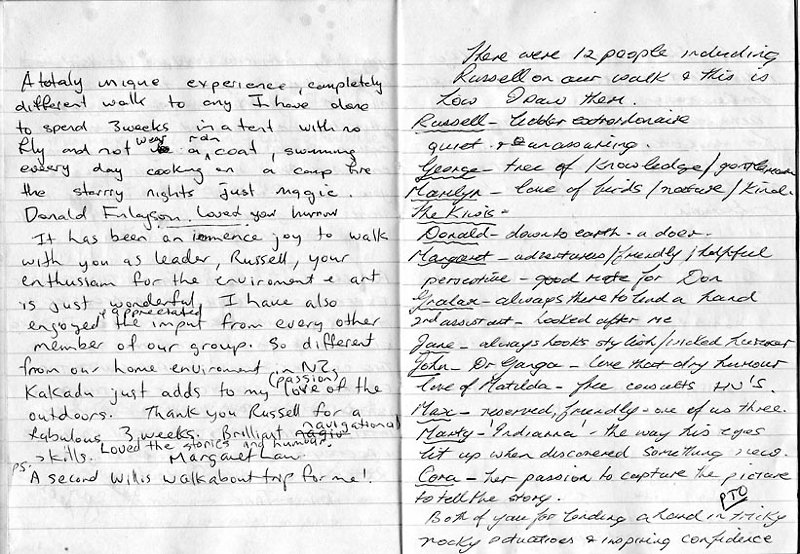 A totaly unique experience, completely
different walk to any I have done
to spend 3 weeks in a tent with no
fly and not wear a rain coat, swimming
every day cooking on a camp fire
the starrry nights just magic.
Donald Finlayson. Loved your humour
It has been an immence joy to walk
with you as leader, Russell, your
enthussam for the enviroment & art
is just wonderful, I have also
enjoyed & appreciated the imput from every other
member of our group. So different
from our home enviroment in NZ,
Kakadu just adds to my (passion) love of the
outdoors. Thank you Russell for a
fabulous 3 weeks. Brilliant navigational
skills. Loved the stories and humour.
Margaret Law
PS.
A second Willis walkabout trip for me!
There were 12 people including
Russell on our walk & this is
how I saw them.
Russell - leader extrordinaire
quiet & unassuming.
George - tree of knowledge / gentleman
Marilyn - love of birds / nature / kind.
The Kiwis -
Donald - down to earth - a doer.
Margaret - adventures / friendly / helpful
persective - good mate for Don
Graham - always there to lend a hand
2nd assistant - looked after me
Jane - always looks stylish / wicked humour
John - Dr Ganga - love that dry humour
love of Matilda - free consults HV'S.
Max - reserved, friendly - one of us three.
Marty - 'Indianna' - the way his eyes
lit up when discovered something new.
Cora - her passion to capture the picture
to tell the story.
PTO
Both of you for lending a hand in tricky
rocky situations & inspiring confidence